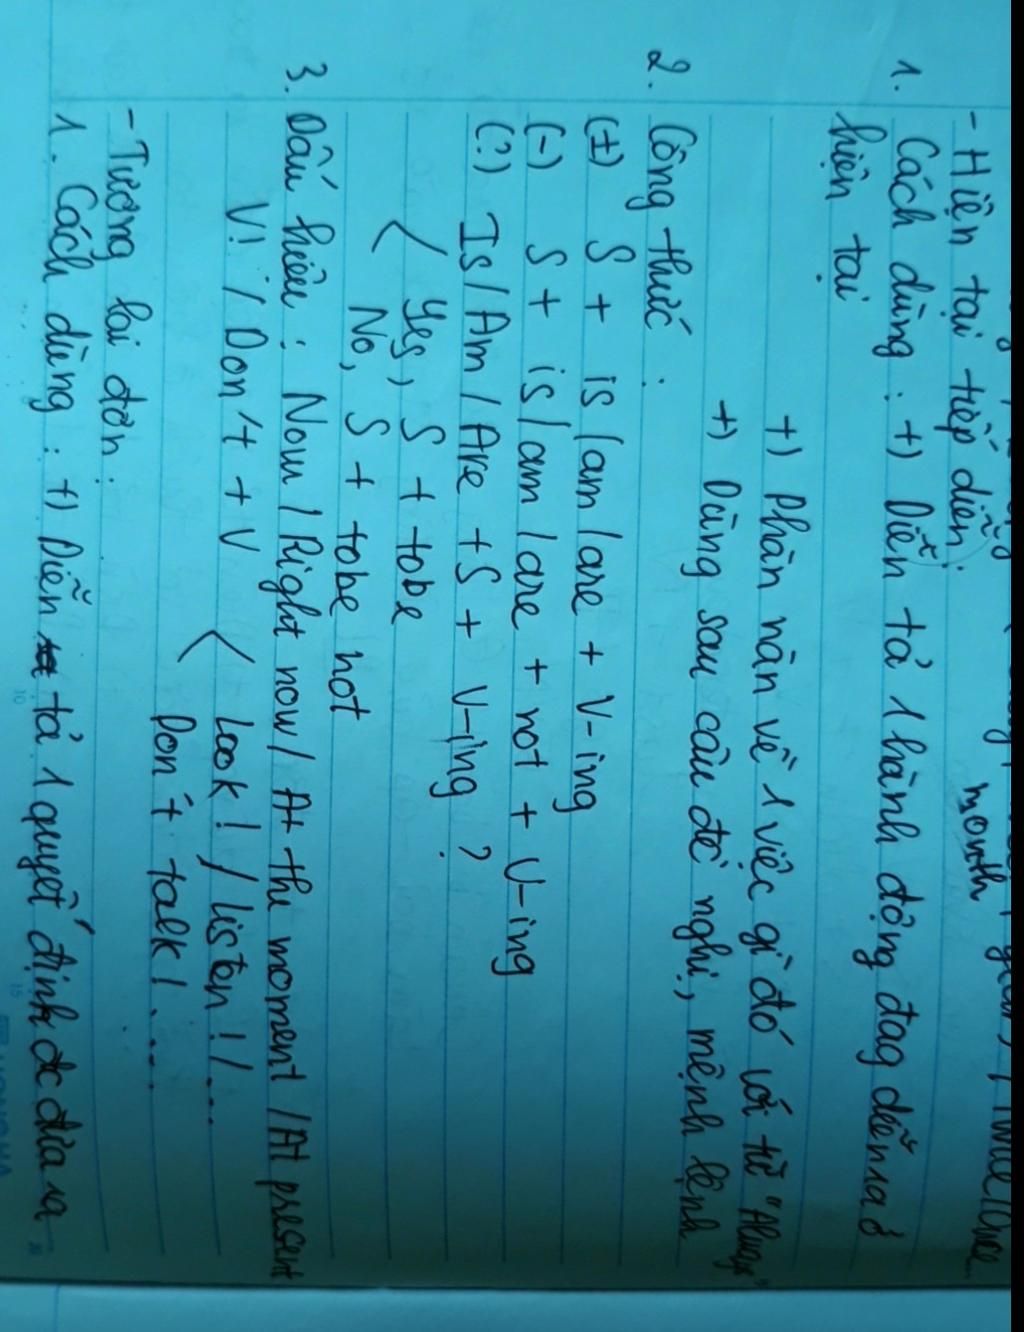 month
Twice/Once
- Hiện tại tiếp diễn:
1. Cách dùng: +) Diễn tả 1 hành động đag diễn ra ở
hiện tại
+) Phàn nàn về 1 việc gì đó với từ "Always"
+) Dùng sau câu đề nghị, mệnh lệnh
2. Công thức:
(±) S + is/am/are + V-ing
(-) S + is/am/are + not + V-ing
(?) Is/Am/Are + S + V-ing?
< Yes, S + tobe
No, S + tobe not
3. Dấu hiệu: Now/Right now/At the moment/At present
V!/Don't + V < Look!/Listen!/...
Don't talk!....
- Tương lai đơn:
1. Cách dùng: +) Diễn tả 1 quyết định đc đưa ra